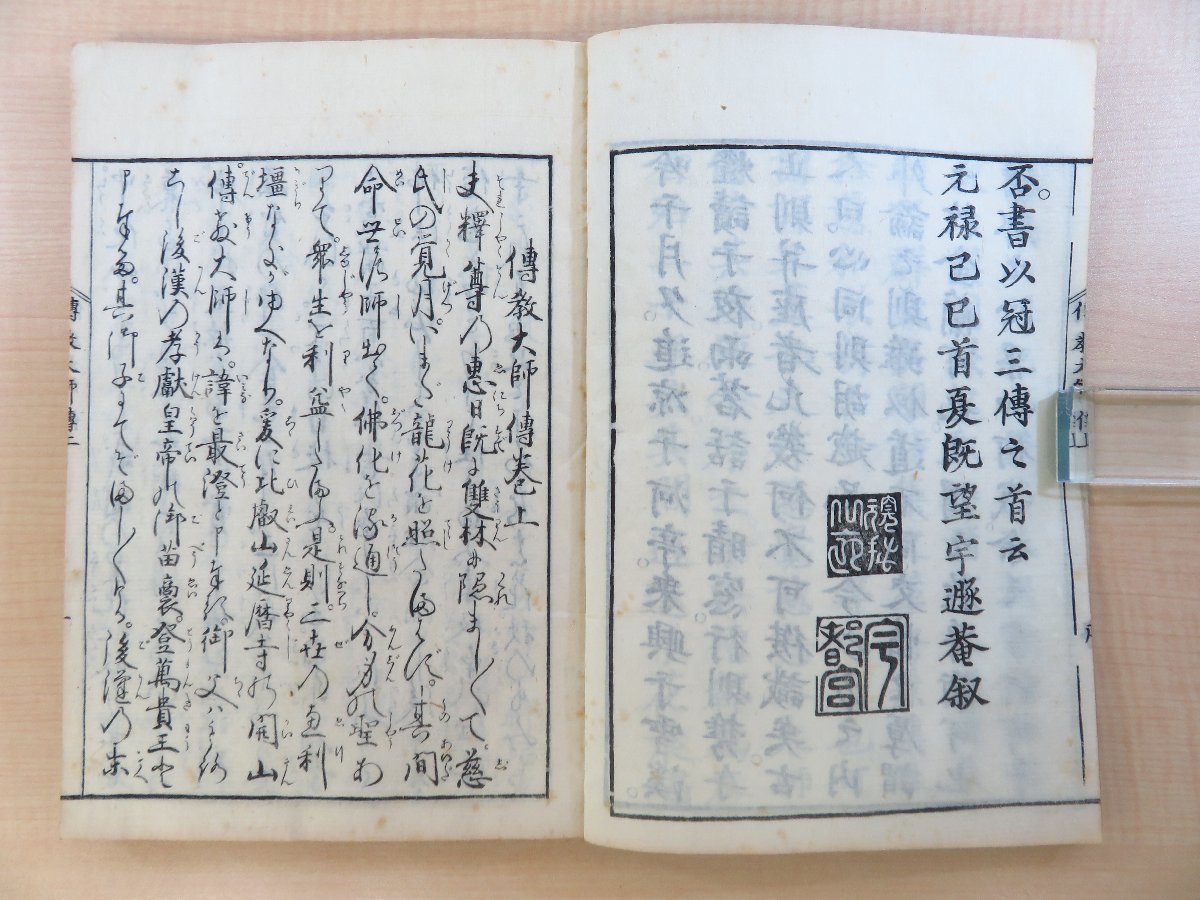 否書以冠三傳之首云
元禄己巳首夏既望宇遯菴叙
宇都宮
傳教大師傳巻上
夫釋尊の惠日既に雙林に隠ましく〳〵て慈
氏の覚月いまだ龍花を照したまはず其間
命世の諸師出て佛化を流通し分身の聖あ
りて衆生を利益したまふ是則三世の益利
壇なるがゆへなり爰に比叡山延暦寺の開山
傳教大師は諱を最澄と申奉る御父は
後漢の孝獻皇帝の御苗裔登萬貴王と
申奉る其御子にてぞましく〳〵ける後漢の末
傳教大師傳上